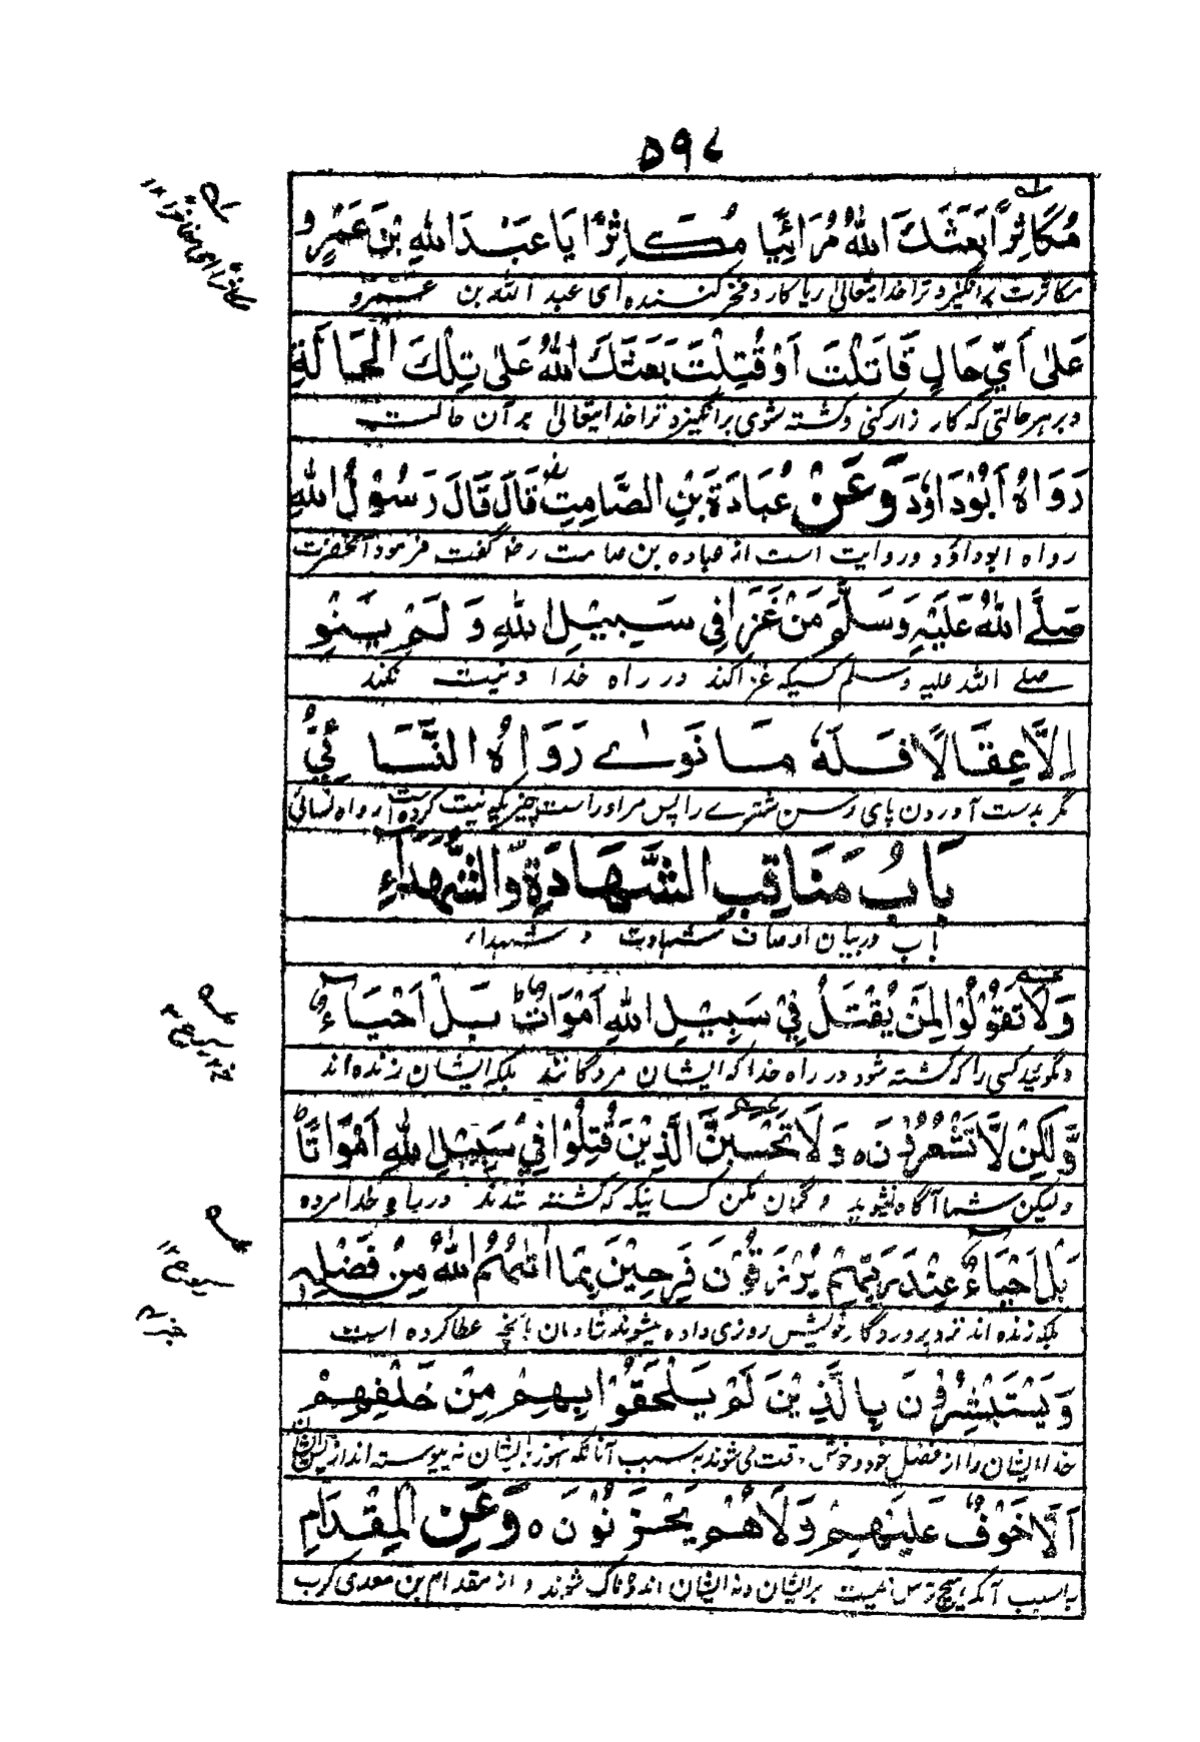 ۵۹۷
مُکَاثِرًا بَعَثَكَ اللهُ مُرَائِيًا مُکَاثِرًا يَا عَبْدَ اللهِ بْنَ عَمْرٍو
مکاثرت برانگیزد ترا خدایتعالی ریا کار و فخر کننده ای عبد الله بن عمرو
عَلٰی اَيِّ حَالٍ قَاتَلْتَ اَوْ قُتِلْتَ بَعَثَكَ اللهُ عَلٰی تِلْكَ الْحَالَةِ
و بر هر حالتی که کار زار کنی و کشته شوی برانگیزد ترا خدایتعالی بر آن حالت
رَوَاهُ اَبُوْ دَاؤدَ وَعَنْ عُبَادَةَ بْنِ الصَّامِتِ قَالَ قَالَ رَسُوْلُ اللهِ
رواه ابوداؤد و روایت است از عباده بن صامت رض گفت فرمود آنحضرت
صَلَّے اللهُ عَلَيْهِ وَسَلَّمَ مَنْ غَزَا فِي سَبِيْلِ اللهِ وَ لَمْ يَنْوِ
صلے الله علیه وسلم کسیکه غزا کند در راه خدا و نیت نکند
اِلَّا عِقَالًا فَلَهٗ مَا نَوٰے رَوَاهُ النَّسَائِيُّ
مگر بدست آوردن پای رسن شترے را پس مر او راست چیزیکه نیت کرده است رواه نسائی
بَابُ مَنَاقِبِ الشَّهَادَةِ وَالشُّهَدَاءِ
باب در بیان اوصاف شهادت و شهداء
وَلَا تَقُوْلُوْا لِمَنْ يُقْتَلُ فِيْ سَبِيْلِ اللهِ اَمْوَاتٌ بَلْ اَحْيَاءٌ
و نگوئید کسی را که کشته شود در راه خدا که ایشان مردگانند بلکه ایشان زنده اند
وَّلٰكِنْ لَّا تَشْعُرُوْنَ ه وَلَا تَحْسَبَنَّ الَّذِيْنَ قُتِلُوْا فِيْ سَبِيْلِ اللهِ اَمْوَاتًا
ولیکن شما آگاه نشوید و گمان مکن کسانیکه که کشته شدند در راه خدا مرده
بَلْ اَحْيَاءٌ عِنْدَ رَبِّهِمْ يُرْزَقُوْنَ فَرِحِيْنَ بِمَا اٰتٰهُمُ اللهُ مِنْ فَضْلِهٖ
بلکه زنده اند نزد پروردگار خویش روزی داده میشوند شادمان بآنچه عطا کرده است
وَيَسْتَبْشِرُوْنَ بِالَّذِيْنَ لَمْ يَلْحَقُوْا بِهِمْ مِنْ خَلْفِهِمْ
خداء ایشان را از فضل خود و خوش وقت می شوند به سبب آنانکه هنوز بایشان نه پیوسته اند از پس ایشان
اَلَّا خَوْفٌ عَلَيْهِمْ وَلَا هُمْ يَحْزَنُوْنَ ه وَعَنِ الْمِقْدَامِ
به سبب آنکه هیچ ترس نیست بر ایشان و نه ایشان اندوهناک شوند و از مقدام بن معدی کرب